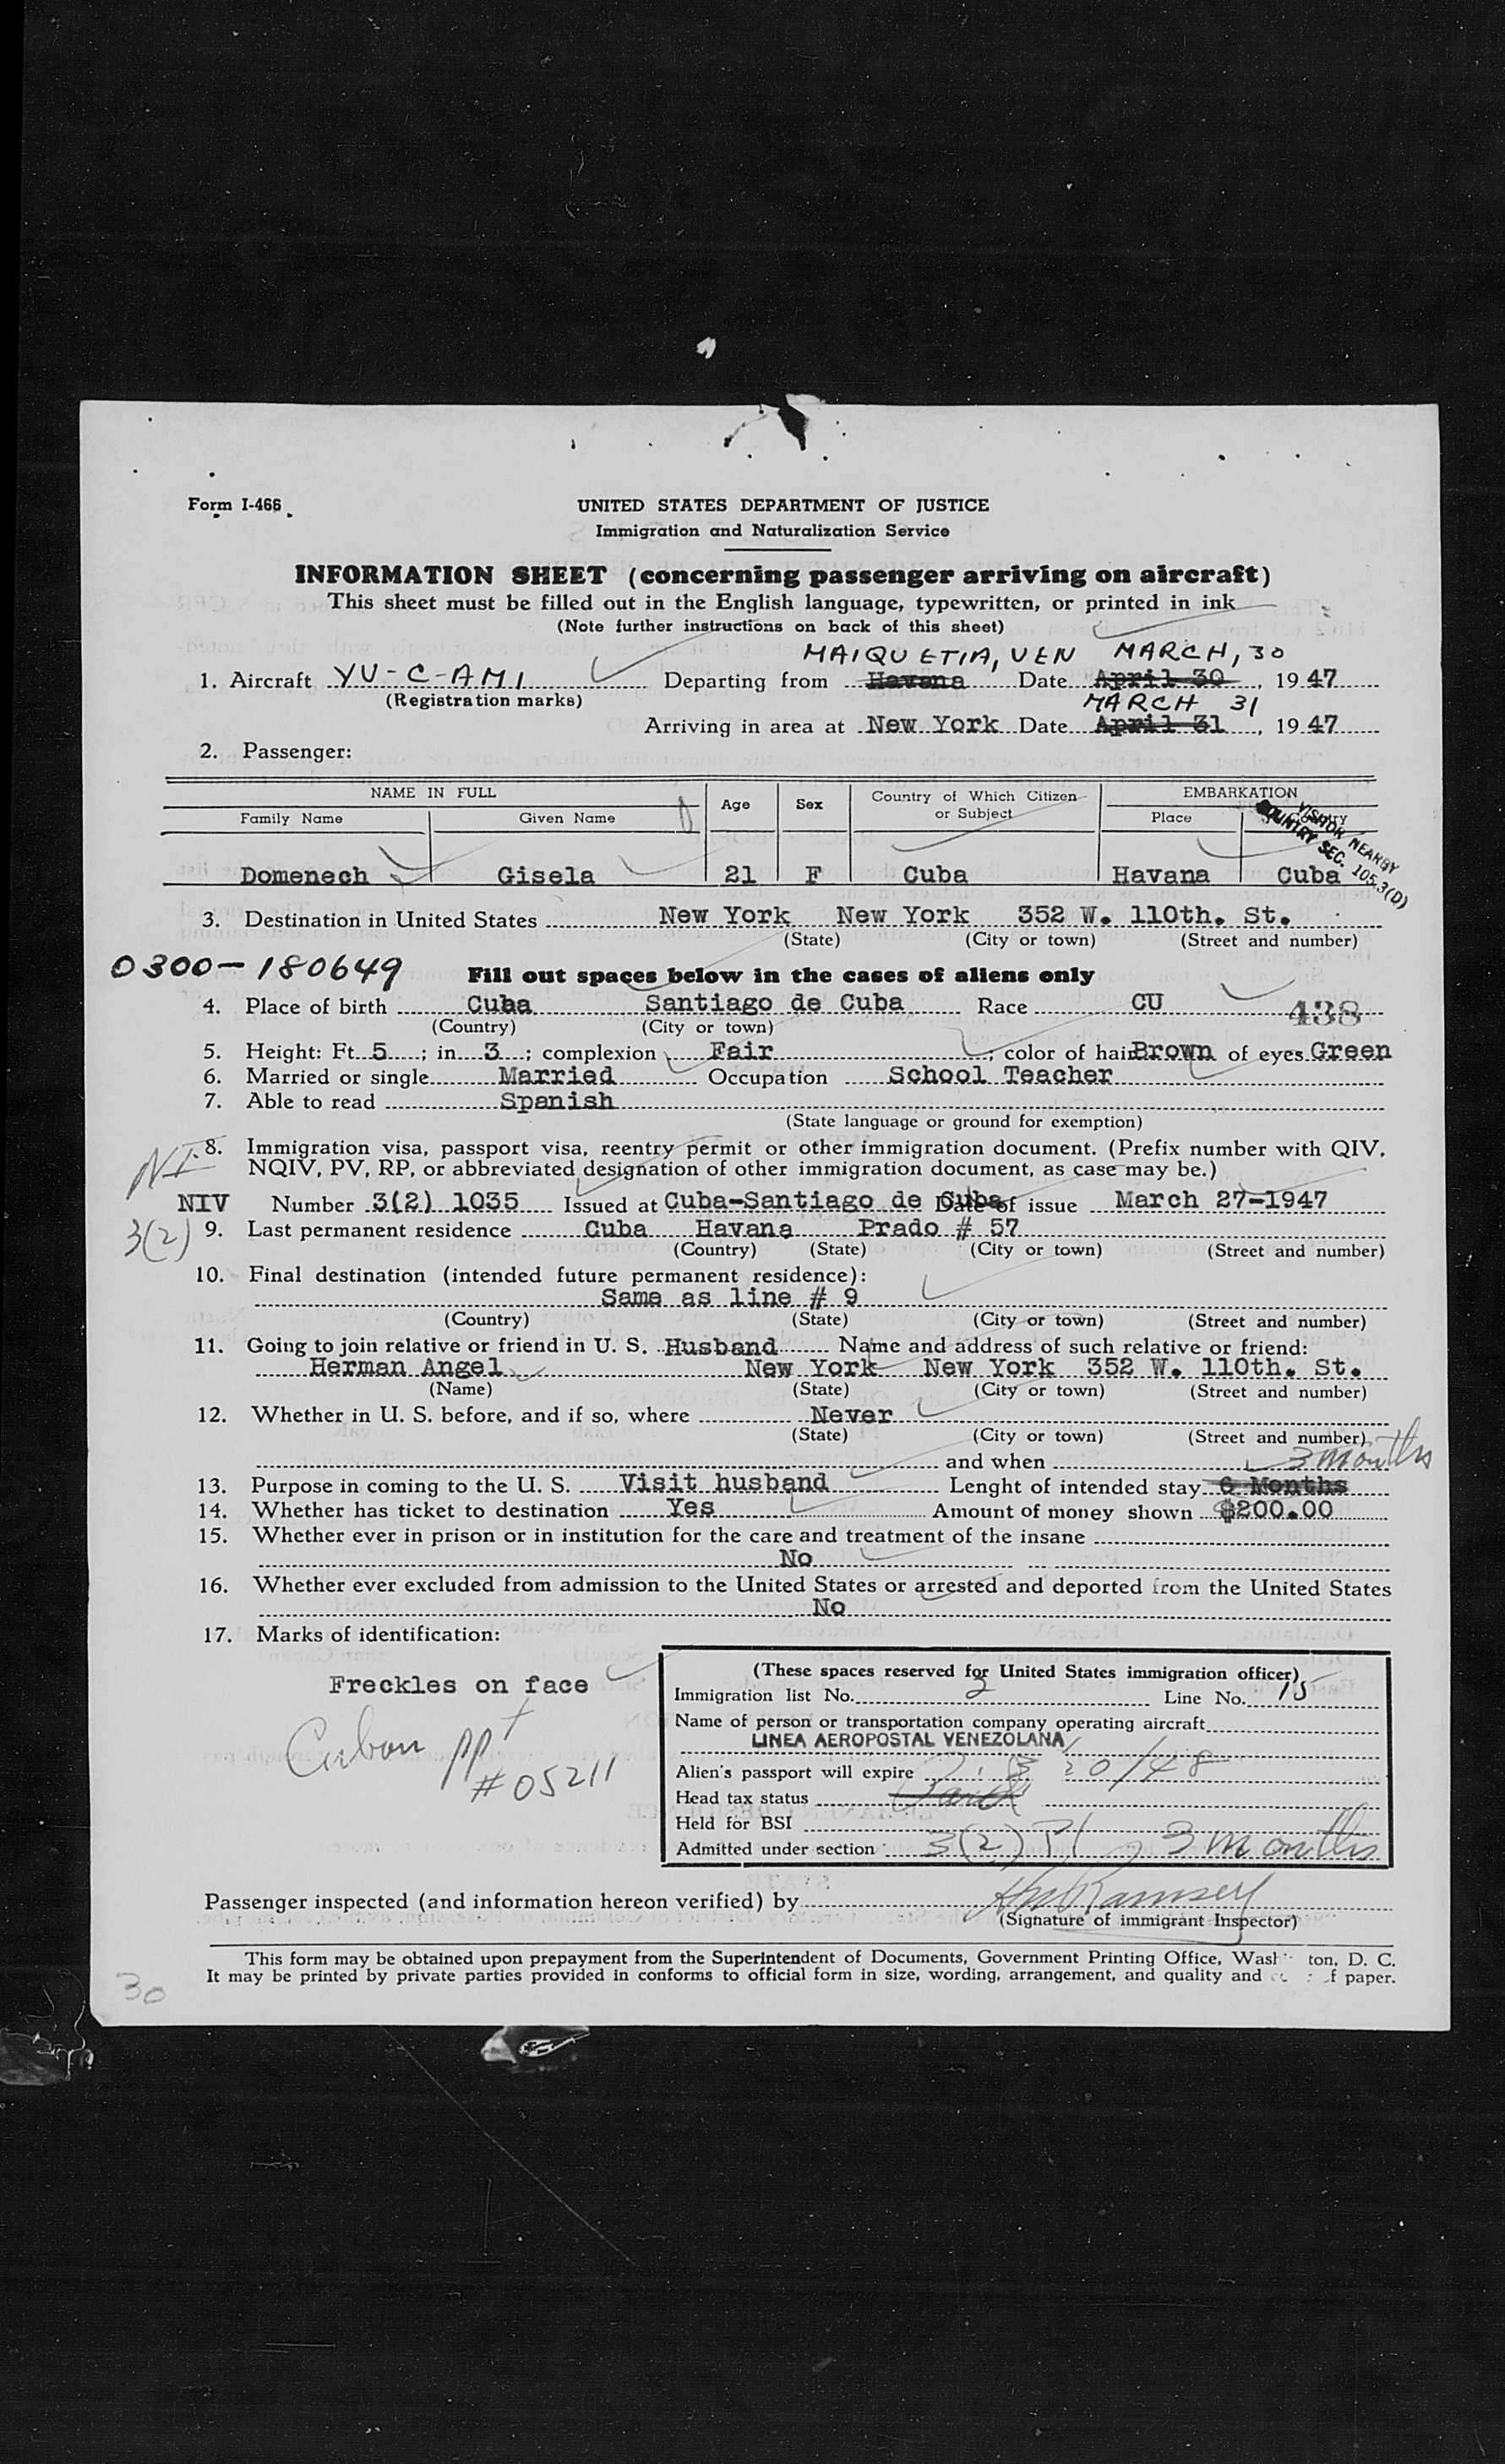 Form I-466
UNITED STATES DEPARTMENT OF JUSTICE
Immigration and Naturalization Service
INFORMATION SHEET (concerning passenger arriving on aircraft)
This sheet must be filled out in the English language, typewritten, or printed in ink
(Note further instructions on back of this sheet)
MAIQUETIA, VEN MARCH, 30
1. Aircraft YV-C-AMI Departing from Havana Date April 30, 1947
(Registration marks)
MARCH 31
Arriving in area at New York Date April 31, 1947
2. Passenger:
NAME IN FULL Age Sex Country of Which Citizen or Subject EMBARKATION
Family Name Given Name Place Country
VISITOR NEARBY
COUNTRY SEC. 105.3(D)
Domenech Gisela 21 F Cuba Havana Cuba
3. Destination in United States New York New York 352 W. 110th. St.
(State) (City or town) (Street and number)
0300-180649 Fill out spaces below in the cases of aliens only
4. Place of birth Cuba Santiago de Cuba Race CU 438
(Country) (City or town)
5. Height: Ft. 5; in 3; complexion Fair; color of hair Brown of eyes Green
6. Married or single Married Occupation School Teacher
7. Able to read Spanish
(State language or ground for exemption)
NI 8. Immigration visa, passport visa, reentry permit or other immigration document. (Prefix number with QIV,
NQIV, PV, RP, or abbreviated designation of other immigration document, as case may be.)
NIV Number 3(2) 1035 Issued at Cuba-Santiago de Cuba Date of issue March 27-1947
3(2) 9. Last permanent residence Cuba Havana Prado # 57
(Country) (State) (City or town) (Street and number)
10. Final destination (intended future permanent residence):
Same as line # 9
(Country) (State) (City or town) (Street and number)
11. Going to join relative or friend in U. S. Husband Name and address of such relative or friend:
Herman Angel New York New York 352 W. 110th. St.
(Name) (State) (City or town) (Street and number)
12. Whether in U. S. before, and if so, where Never
(State) (City or town) (Street and number)
and when 3 months
13. Purpose in coming to the U. S. Visit husband Lenght of intended stay 6 Months
14. Whether has ticket to destination Yes Amount of money shown $200.00
15. Whether ever in prison or in institution for the care and treatment of the insane
No
16. Whether ever excluded from admission to the United States or arrested and deported from the United States
No
17. Marks of identification:
Freckles on face
Cuban ppt
#05211
(These spaces reserved for United States immigration officer)
Immigration list No. 2 Line No. 15
Name of person or transportation company operating aircraft
LINEA AEROPOSTAL VENEZOLANA
Alien's passport will expire 20/48
Head tax status
Held for BSI
Admitted under section 3(2) 3 months
Passenger inspected (and information hereon verified) by Ramsey
(Signature of immigrant Inspector)
This form may be obtained upon prepayment from the Superintendent of Documents, Government Printing Office, Wash ton, D. C.
It may be printed by private parties provided in conforms to official form in size, wording, arrangement, and quality and paper.
30